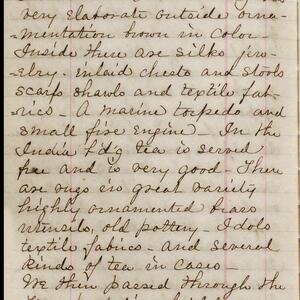 very elaborate outside orna-
mentation brown in color
Inside there are silks jew-
elry - inlaid chests and stools
scarfs shawls and textile fab-
rics - A marine torpedo and
small fire engine - In the
India b'd'g tea is served
free and is very good - There
are rugs in great variety
highly ornamented brass
utensils, old pottery - Idols
textile fabrics - and several
kinds of tea in cases -
We then passed through the